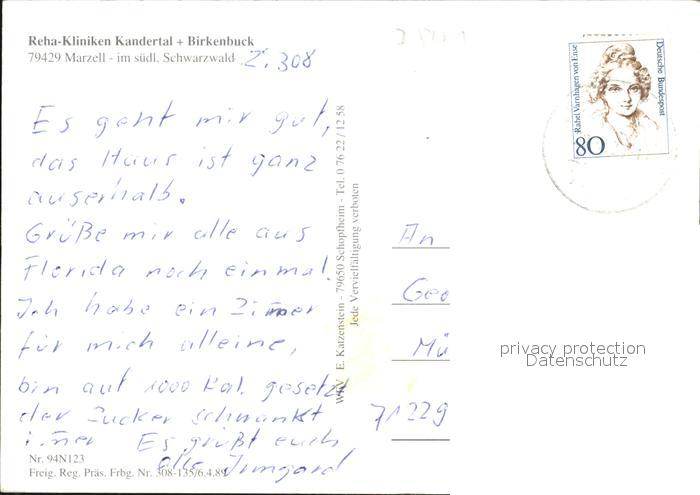 Reha-Kliniken Kandertal + Birkenbuck
79429 Marzell - im südl. Schwarzwald
Z. 308
Es geht mir gut,
das Haus ist ganz
auserhalb.
Grüße mir alle aus
Florida noch einmal.
Ich habe ein Zimer
für mich alleine,
bin auf 1000 Kal. gesetzt
der Zucker schwankt
imer Es grüßt euch
alle Irmgard
Nr. 94N123
Freig. Reg. Präs. Frbg. Nr. 308-135/6.4.89
WRV E. Katzenstein - 79650 Schopfheim - Tel. 0 76 22 / 12 58
Jede Vervielfältigung verboten
Deutsche Bundespost
Rahel Varnhagen von Ense
80
An
Geo
Mü
71229
privacy protection
Datenschutz